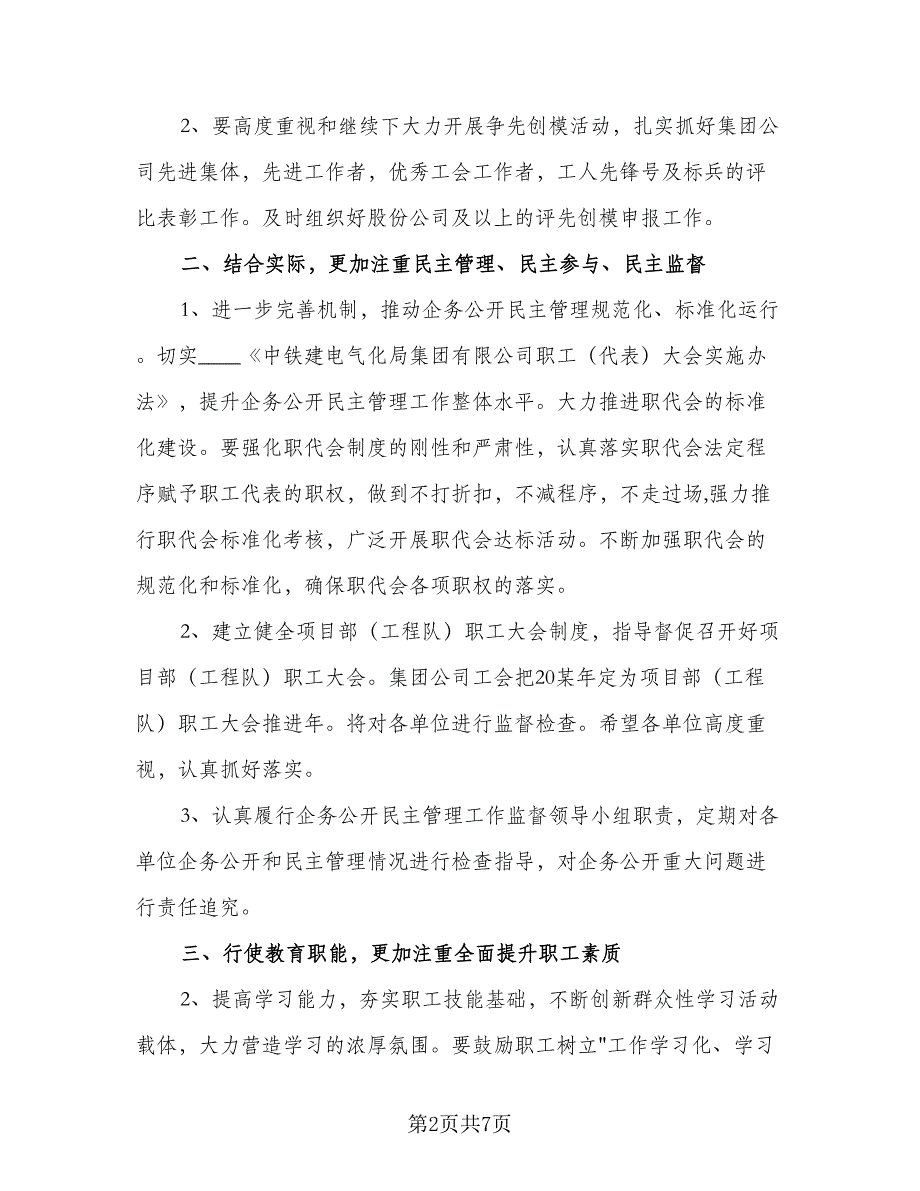 2、要高度重视和继续下大力开展争先创模活动，扎实抓好集团公
司先进集体，先进工作者，优秀工会工作者，工人先锋号及标兵的评
比表彰工作。及时组织好股份公司及以上的评先创模申报工作。
二、结合实际，更加注重民主管理、民主参与、民主监督
1、进一步完善机制，推动企务公开民主管理规范化、标准化运行
。切实____《中铁建电气化局集团有限公司职工（代表）大会实施办
法》，提升企务公开民主管理工作整体水平。大力推进职代会的标准
化建设。要强化职代会制度的刚性和严肃性，认真落实职代会法定程
序赋予职工代表的职权，做到不打折扣，不减程序，不走过场,强力推
行职代会标准化考核，广泛开展职代会达标活动。不断加强职代会的
规范化和标准化，确保职代会各项职权的落实。
2、建立健全项目部（工程队）职工大会制度，指导督促召开好项
目部（工程队）职工大会。集团公司工会把20某年定为项目部（工程
队）职工大会推进年。将对各单位进行监督检查。希望各单位高度重
视，认真抓好落实。
3、认真履行企务公开民主管理工作监督领导小组职责，定期对各
单位企务公开和民主管理情况进行检查指导，对企务公开重大问题进
行责任追究。
三、行使教育职能，更加注重全面提升职工素质
2、提高学习能力，夯实职工技能基础，不断创新群众性学习活动
载体，大力营造学习的浓厚氛围。要鼓励职工树立"工作学习化、学习
第2页共7页